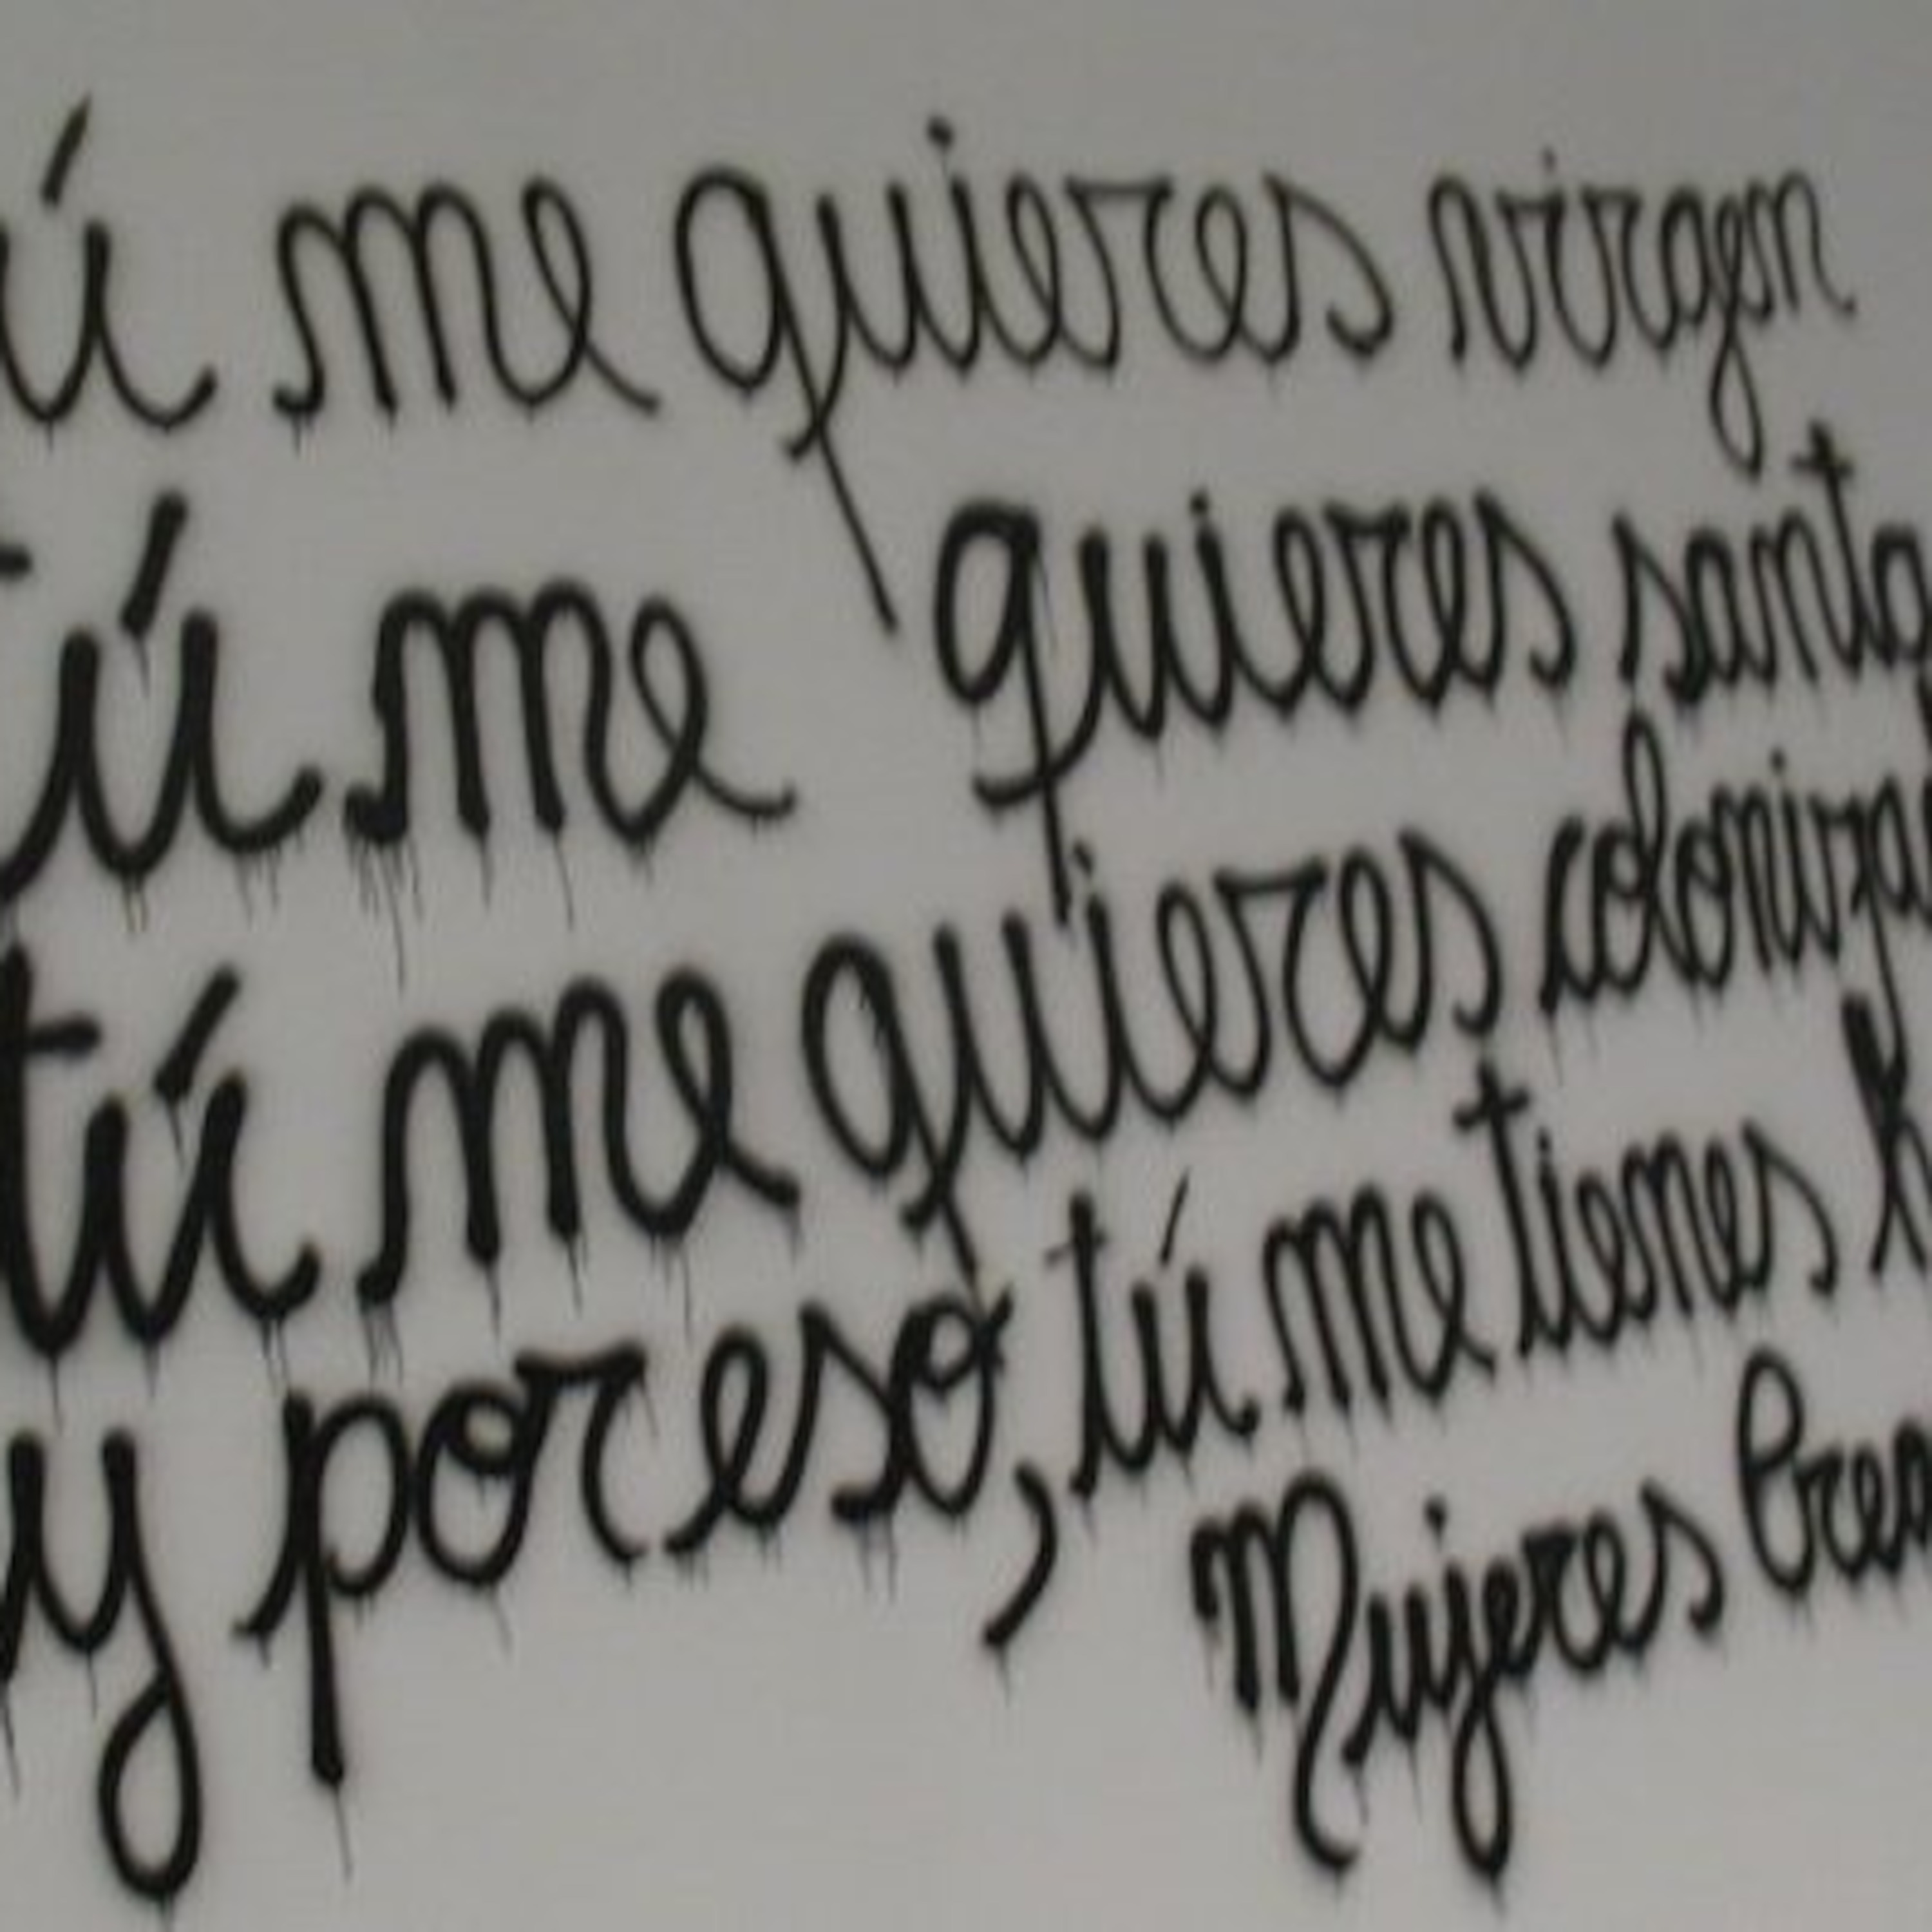 ú me quieres virgen
tú me quieres santa
tú me quieres coloniza
y por eso, tú me tienes h
Mujeres Crea